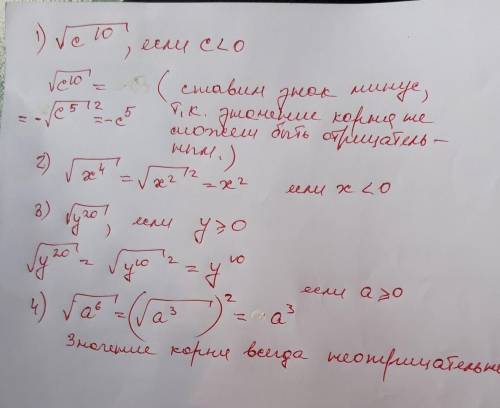 1) √c¹⁰, если c<0
√c¹⁰ = (ставим знак минус,
= -√c⁵² = -c⁵ т.к. значение корня не
может быть отрицатель-
ным.)
2) √x⁴ = √x²² = x² если x<0
3) √y²⁰, если y⩾0
√y²⁰ = √y¹⁰² = y¹⁰
4) √a⁶ = (√a³)² = a³ если a⩾0
Значение корня всегда неотрицательн